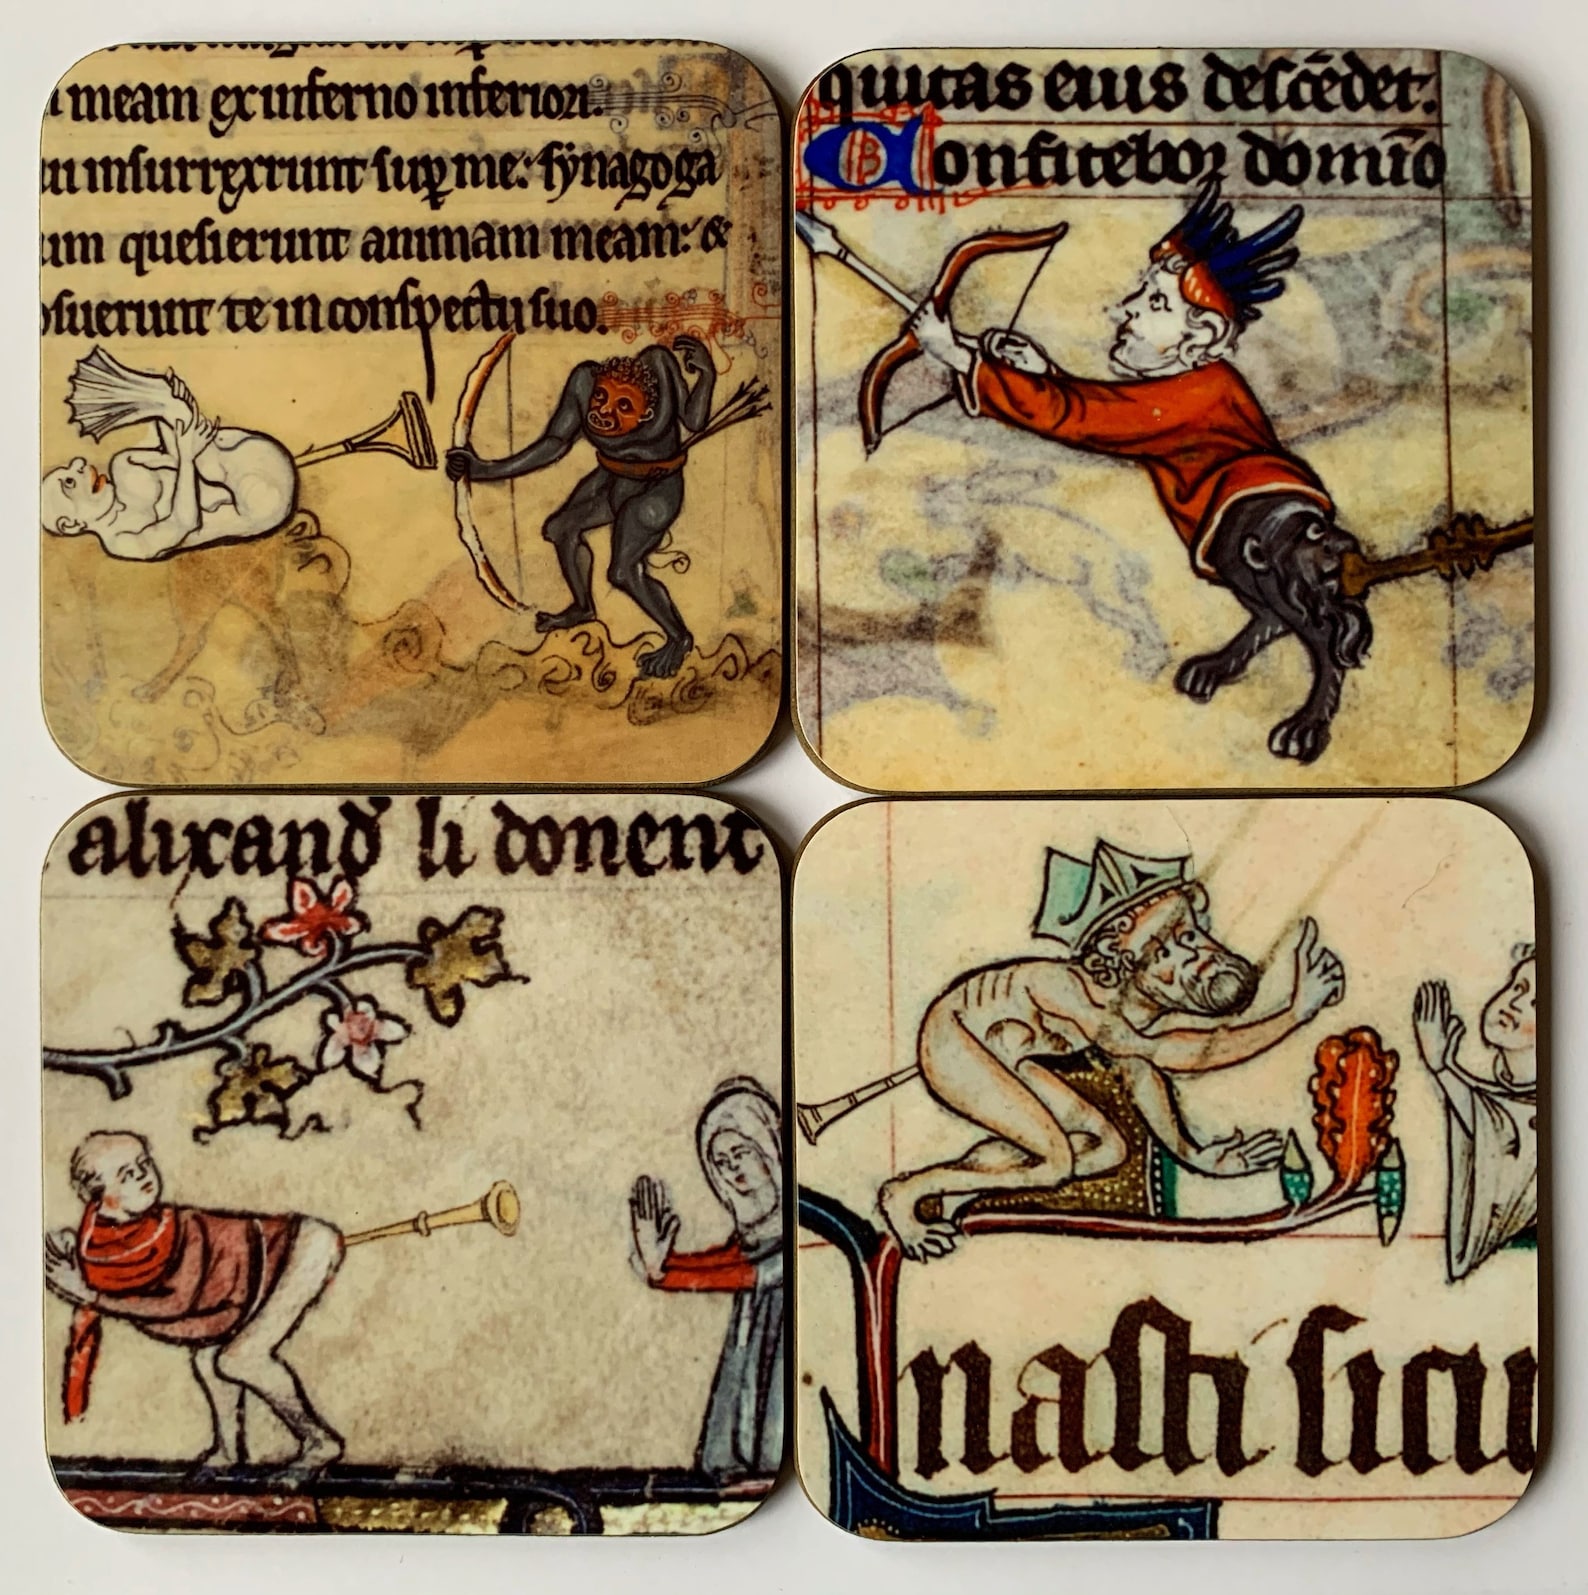 meam ex inferno inferiori.
insurrexerunt suꝑ me: synagoga
um quesierunt animam meam: &
osuerunt te in conspectu suo.
quitas eius descēdet.
Confitebor domīo
alixand' li donent
nasti sicu